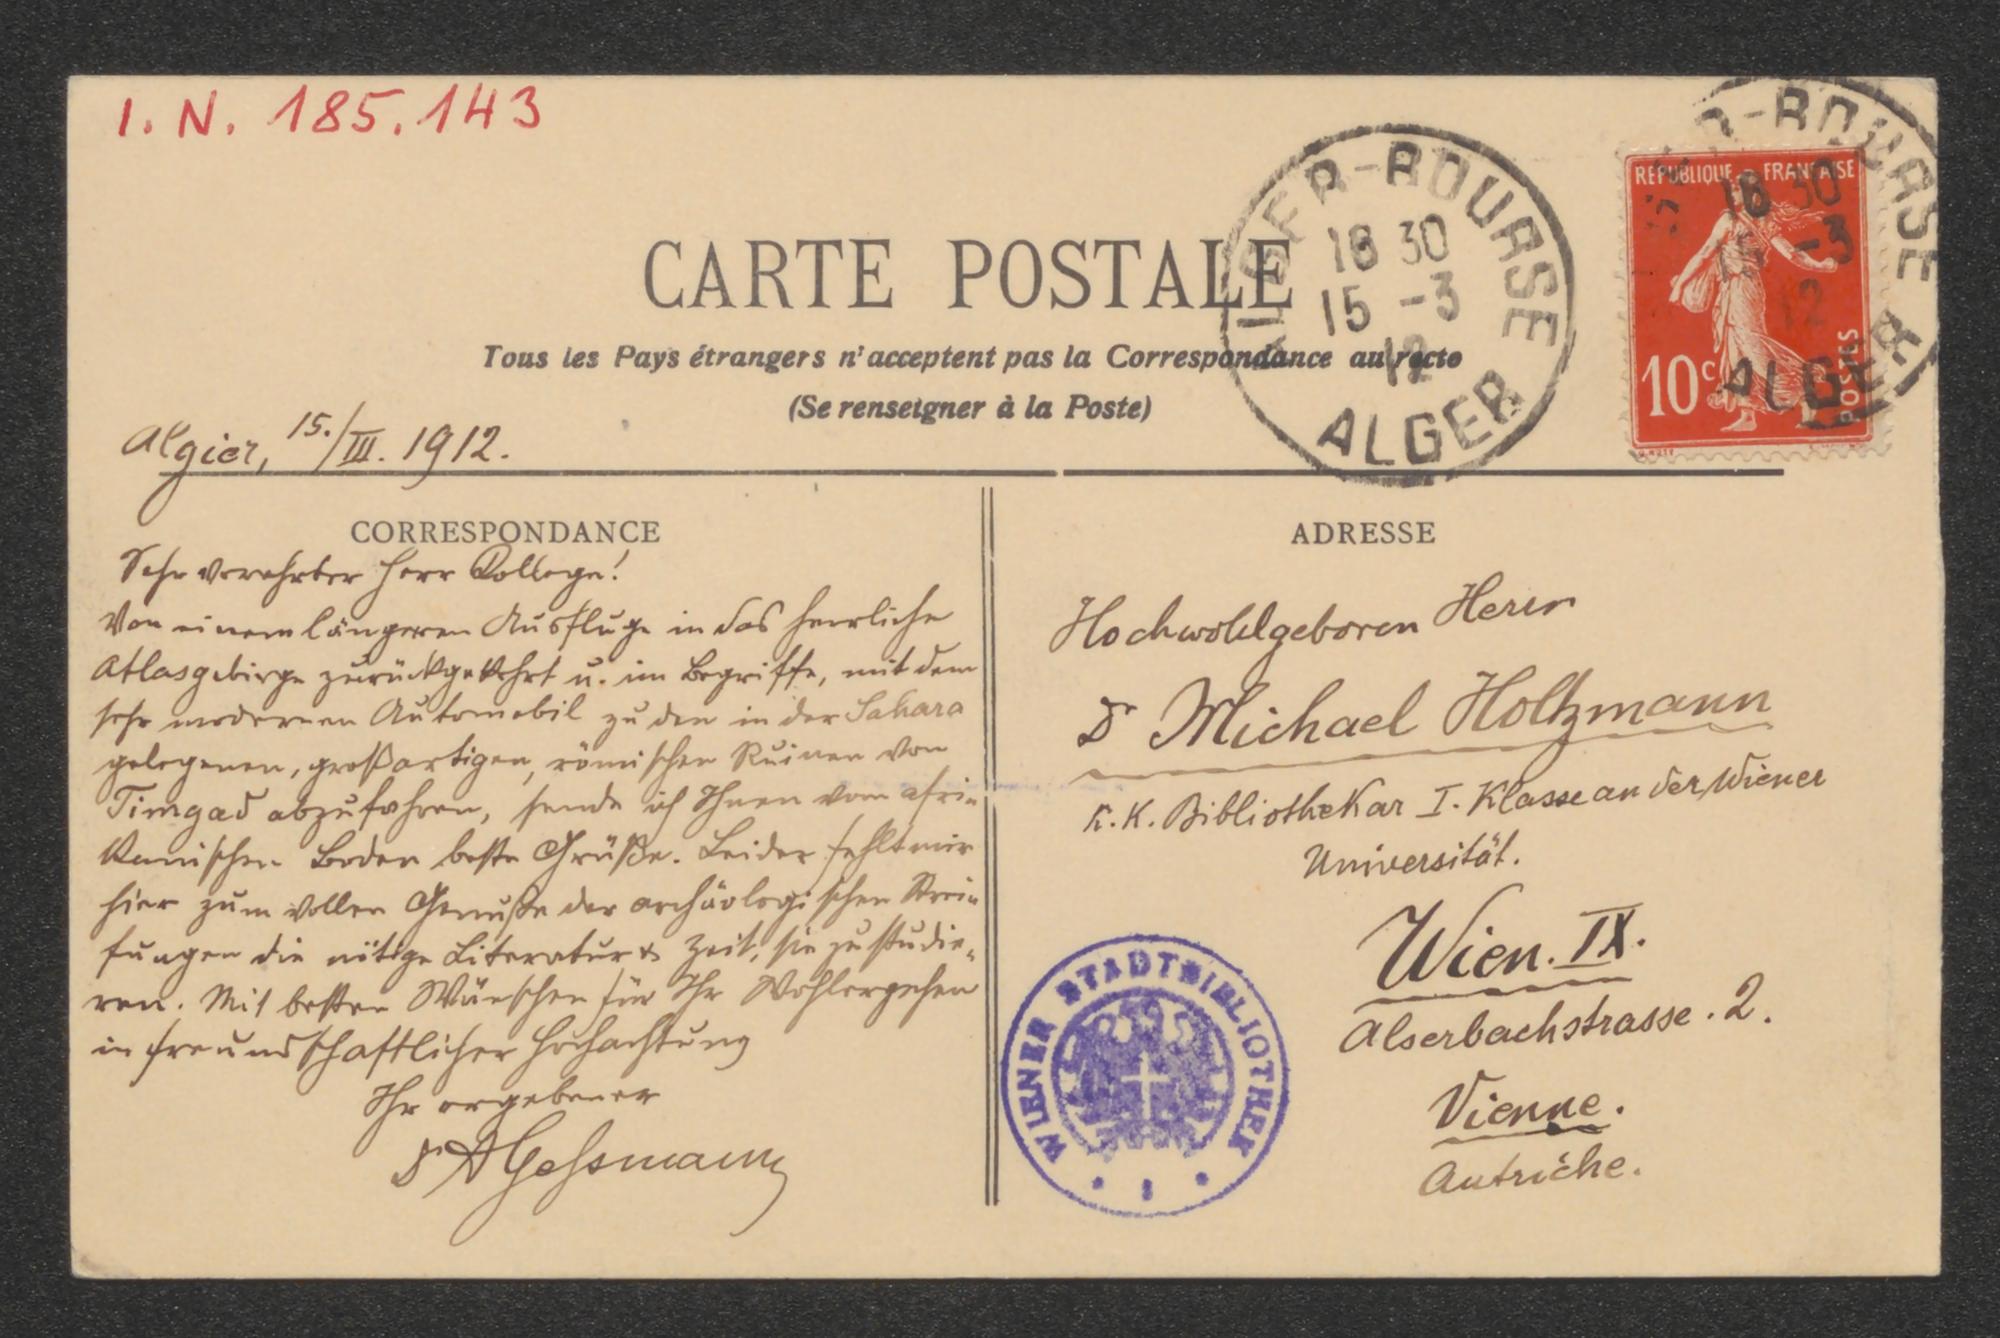 I. N. 185.143
ALGER-BOURSE
18 30
15 -3
12
ALGER
ALGER-BOURSE
18 30
15 -3
12
ALGER
REPUBLIQUE FRANÇAISE
10c
POSTES
CARTE POSTALE
Tous les Pays étrangers n'acceptent pas la Correspondance au recto
(Se renseigner à la Poste)
Algier, 15./III. 1912.
CORRESPONDANCE
Sehr verehrter Herr Kollege!
Von einem längeren Ausfluge in das herrliche
Atlasgebirge zurückgekehrt u. im Begriffe, mit dem
sehr modernen Automobil zu den in der Sahara
gelegenen, großartigen, römischen Ruinen von
Timgad abzufahren, sende ich Ihnen vom afri-
kanischen Boden beste Grüße. Leider fehlt mir
hier zum vollen Genuße der archäologischen Strei-
fungen die nötige Literatur & Zeit, sie zu studie-
ren. Mit besten Wünschen für Ihr Wohlergehen
in freundschaftlicher Hochachtung
Ihr ergebener
Dr A Gessmann
ADRESSE
Hochwohlgeboren Herrn
Dr Michael Holtzmann
k. k. Bibliothekar I. Klasse an der Wiener
Universität.
Wien. IX.
Alserbachstrasse. 2.
Vienne.
Autriche.
WIENER STADTBIBLIOTHEK